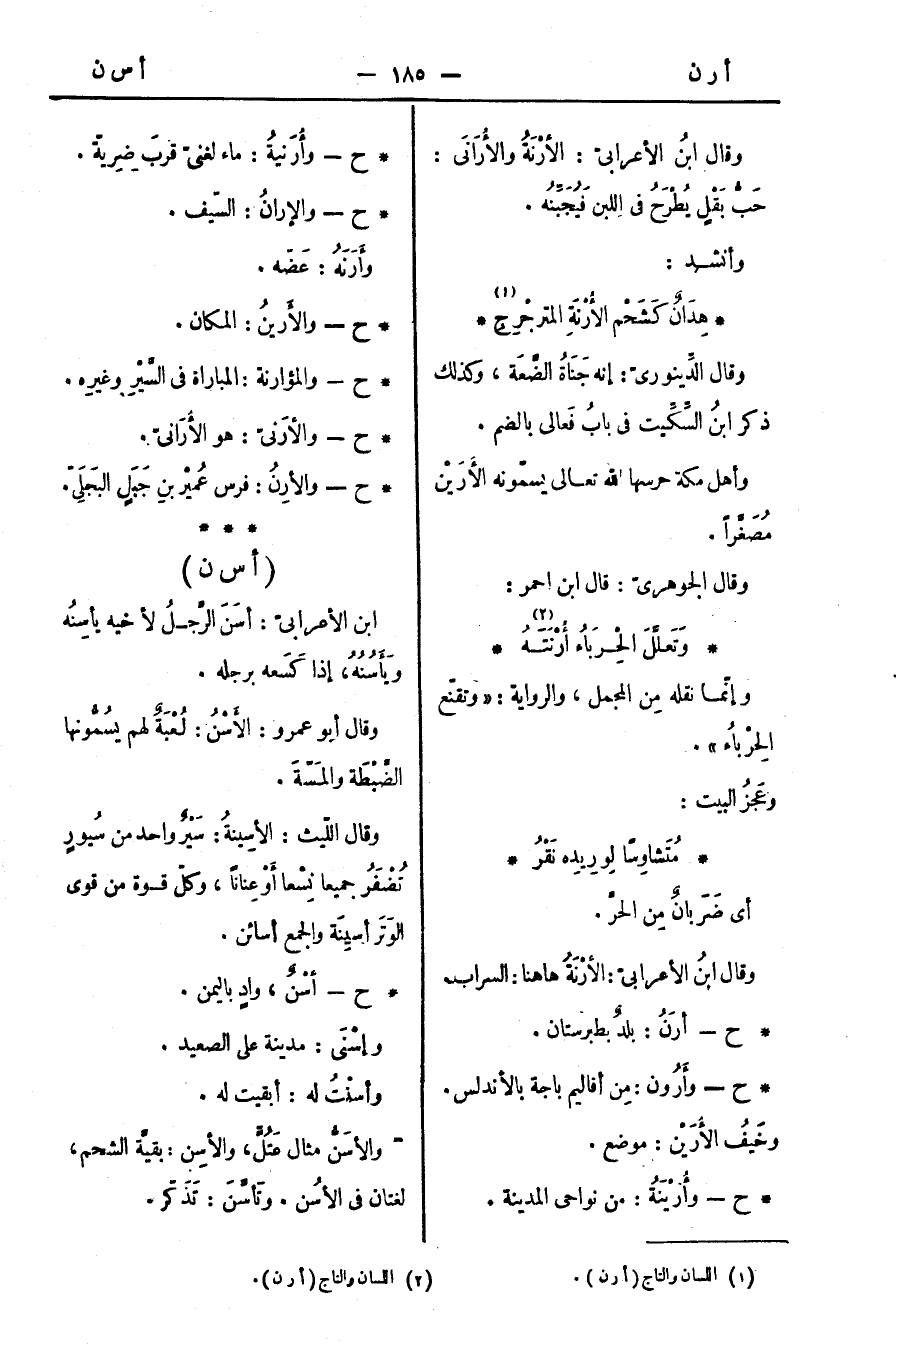 أرن
— ١٨٥ —
أسن
وقال ابنُ الأعرابىّ : الأُرْنَةُ والأُرَانَى :
حَبُّ بَقْلٍ يُطْرَحُ فى اللبن فَيُجَبِّنُه .
وأنشـد :
* هِدَانٌ كَشَحْم الأُرْنَةِ المترجْرِجِ (١) *
وقال الدِّينورىّ : إنه جَنَاةُ الضَّعَة ، وكذلك
ذكر ابنُ السِّكِّيت فى باب فُعَالى بالضم .
وأهل مكة حرسها الله تعـالى يسمّونه الأُرَيْن
مُصَغَّراً .
وقال الجوهرىّ : قال ابن احمر :
* وَتَعَلَّلَ الْحِـرْبَاءُ أُرْنَتَـهُ (٢) *
وإنّمـا نقله مِن المجمل ، والرواية : « وتقنّع
الحِرْباءُ » .
وعَجُزُ البيت :
* مُتَشاوِسًا لِوَرِيدِه نَقْرُ *
أى ضَرَبانٌ مِن الحرّ .
وقال ابنُ الأعرابىّ : الأُرْنَةُ هاهنا : السراب .
* ح — أَرَنُ : بلدٌ بطبرستان .
* ح — وأَرُون : مِن أقاليم باجة بالأندلس .
وخَيْفُ الأُرَيْن : موضع .
* ح — وأُرَيْنَةُ : من نواحى المدينة .
* ح — وأُرَنيةُ : ماء لغنىّ قربَ ضِريةّ .
* ح — والإرانُ : السّيف .
وأَرَنَهُ : عَضّه .
* ح — والأَرينُ : المكان .
* ح — والمؤارنة : المباراة فى السَّيْرِ وغيرِه .
* ح — والأُرَنىّ : هو الأُرَانىّ .
* ح — والأرِنُ : فرس عُمَيْرِ بنِ جَبَلٍ البَجَلَىّ .
* * *
(أ س ن)
ابن الأعرابىّ : أسَنَ الرَّجـلُ لأخيه يأسِنُه
ويَأْسُنُهُ ، إذا كَسَعه برجله .
وقال أبو عمرو : الأَسْنُ : لُعْبَةٌ لهم يسُمُّونها
الضَّبْطَة والمَسّةَ .
وقال اللّيث : الأسِينةُ : سَيْرٌ واحد من سُيورٍ
تُضْفَرُ جميعا نِسْعا أَوْ عِناناً ، وكلّ قـوة من قوى
الوَتَر أسِينَة والجمع أسائن .
* ح — أسْنٌ ، وادٍ باليمن .
وإسْنَى : مدينة على الصعيد .
وأسَنْتُ له : أبقيت له .
- والأسَنُّ مثال عَتُلٍّ ، والأسِن : بقيةَّ الشحم ،
لغتان فى الأسُن . وتَأسَّنَ : تَذَكّرَ .
(١) اللسان والتاج (أ ر ن) .
(٢) اللسان والتاج (أ ر ن) .